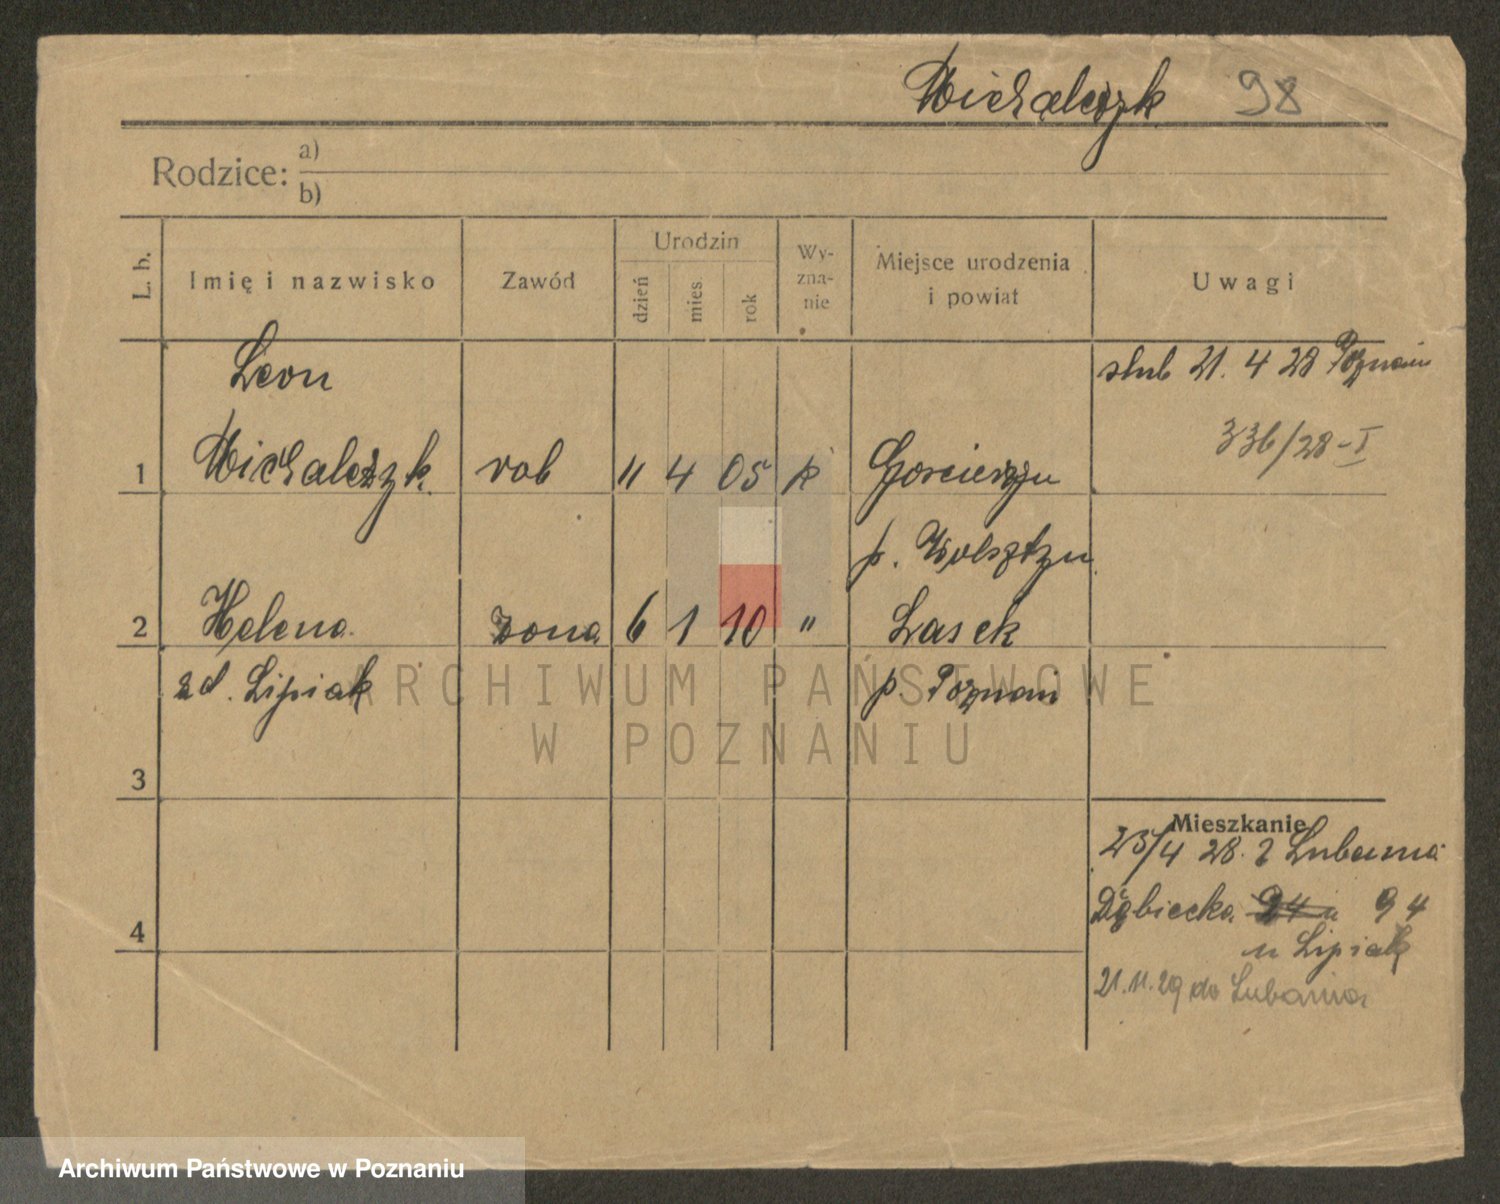 Michalczyk 98
Rodzice: a)
b)
L. b.
Imię i nazwisko
Zawód
Urodzin
dzień
mies.
rok
Wy-
zna-
nie
Miejsce urodzenia
i powiat
Uwagi
Leon
ślub 21. 4 28 Poznań
336/28-I
1 Michalczyk rob 11 4 05 k
p. Wolsztyn
2 Helena żona 6 1 10 " Lasek
zd. Lipiak p. Poznań
ARCHIWUM PAŃSTWOWE
W POZNANIU
3
Mieszkanie
25/4 28. z Lubonia
4 Dębiecka 94
u Lipiak
21.11.29 do Lubonia
Archiwum Państwowe w Poznaniu